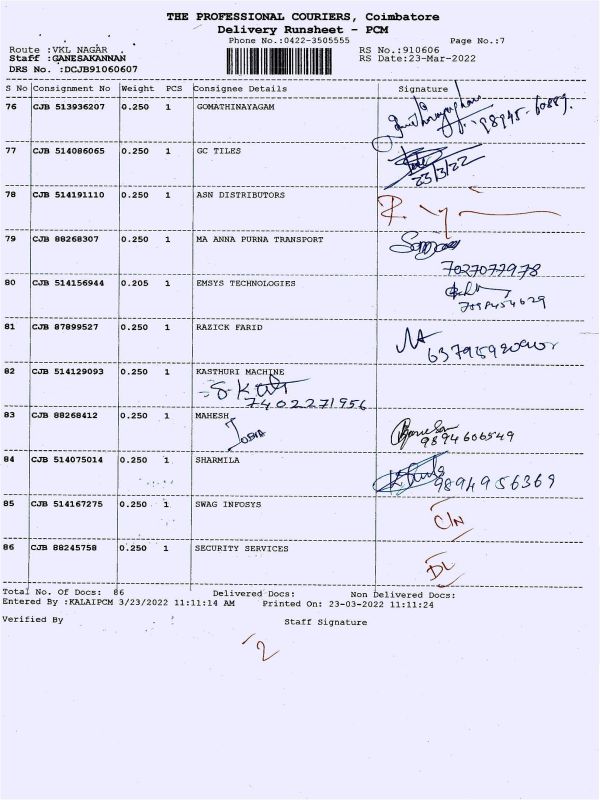 THE PROFESSIONAL COURIERS, Coimbatore
Delivery Runsheet - PCM
Phone No.:0422-3505555 Page No.:7
Route :VKL NAGAR RS No.:910606
Staff :GANESAKANNAN RS Date:23-Mar-2022
DRS No. :DCJB91060607
S No Consignment No Weight PCS Consignee Details Signature
76 CJB 513936207 0.250 1 GOMATHINAYAGAM
77 CJB 514086065 0.250 1 GC TILES
23/3/22
78 CJB 514191110 0.250 1 ASN DISTRIBUTORS
79 CJB 88268307 0.250 1 MA ANNA PURNA TRANSPORT
7027077978
80 CJB 514156944 0.205 1 EMSYS TECHNOLOGIES
81 CJB 87899527 0.250 1 RAZICK FARID
82 CJB 514129093 0.250 1 KASTHURI MACHINE
7402271956
83 CJB 88268412 0.250 1 MAHESH
9894606549
84 CJB 514075014 0.250 1 SHARMILA
9894956369
85 CJB 514167275 0.250 1 SWAG INFOSYS
C/N
86 CJB 88245758 0.250 1 SECURITY SERVICES
DL
Total No. Of Docs: 86 Delivered Docs: Non Delivered Docs:
Entered By :KALAIPCM 3/23/2022 11:11:14 AM Printed On: 23-03-2022 11:11:24
Verified By Staff Signature
2